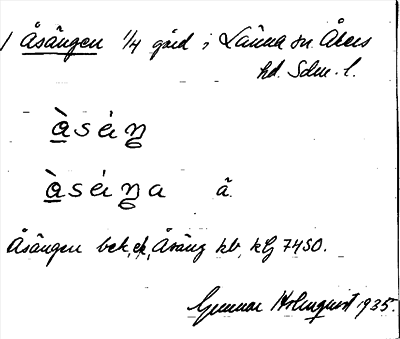 1 Åsängen 1/4 gård i Länna sn Åkers
hd. Sdm. l.
àsèiŋ
àsèiŋa â
Åsängen bek, ek, Åsäng hb, kG 7450.
Gunnar Holmquist 1935.